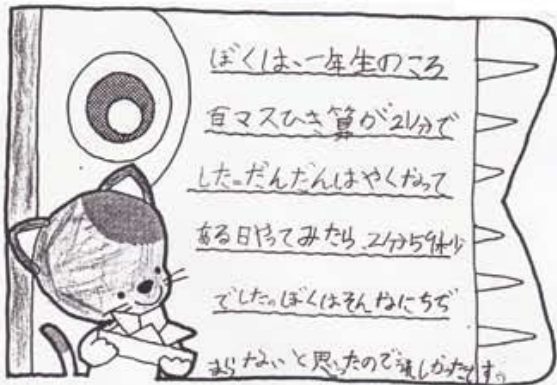 ぼくは、一年生のころ
百マスひき算が21分で
した。だんだんはやくなって
ある日やってみたら、2分59秒
でした。ぼくはそんなにちぢ
まらないと思ったので嬉しかったです。